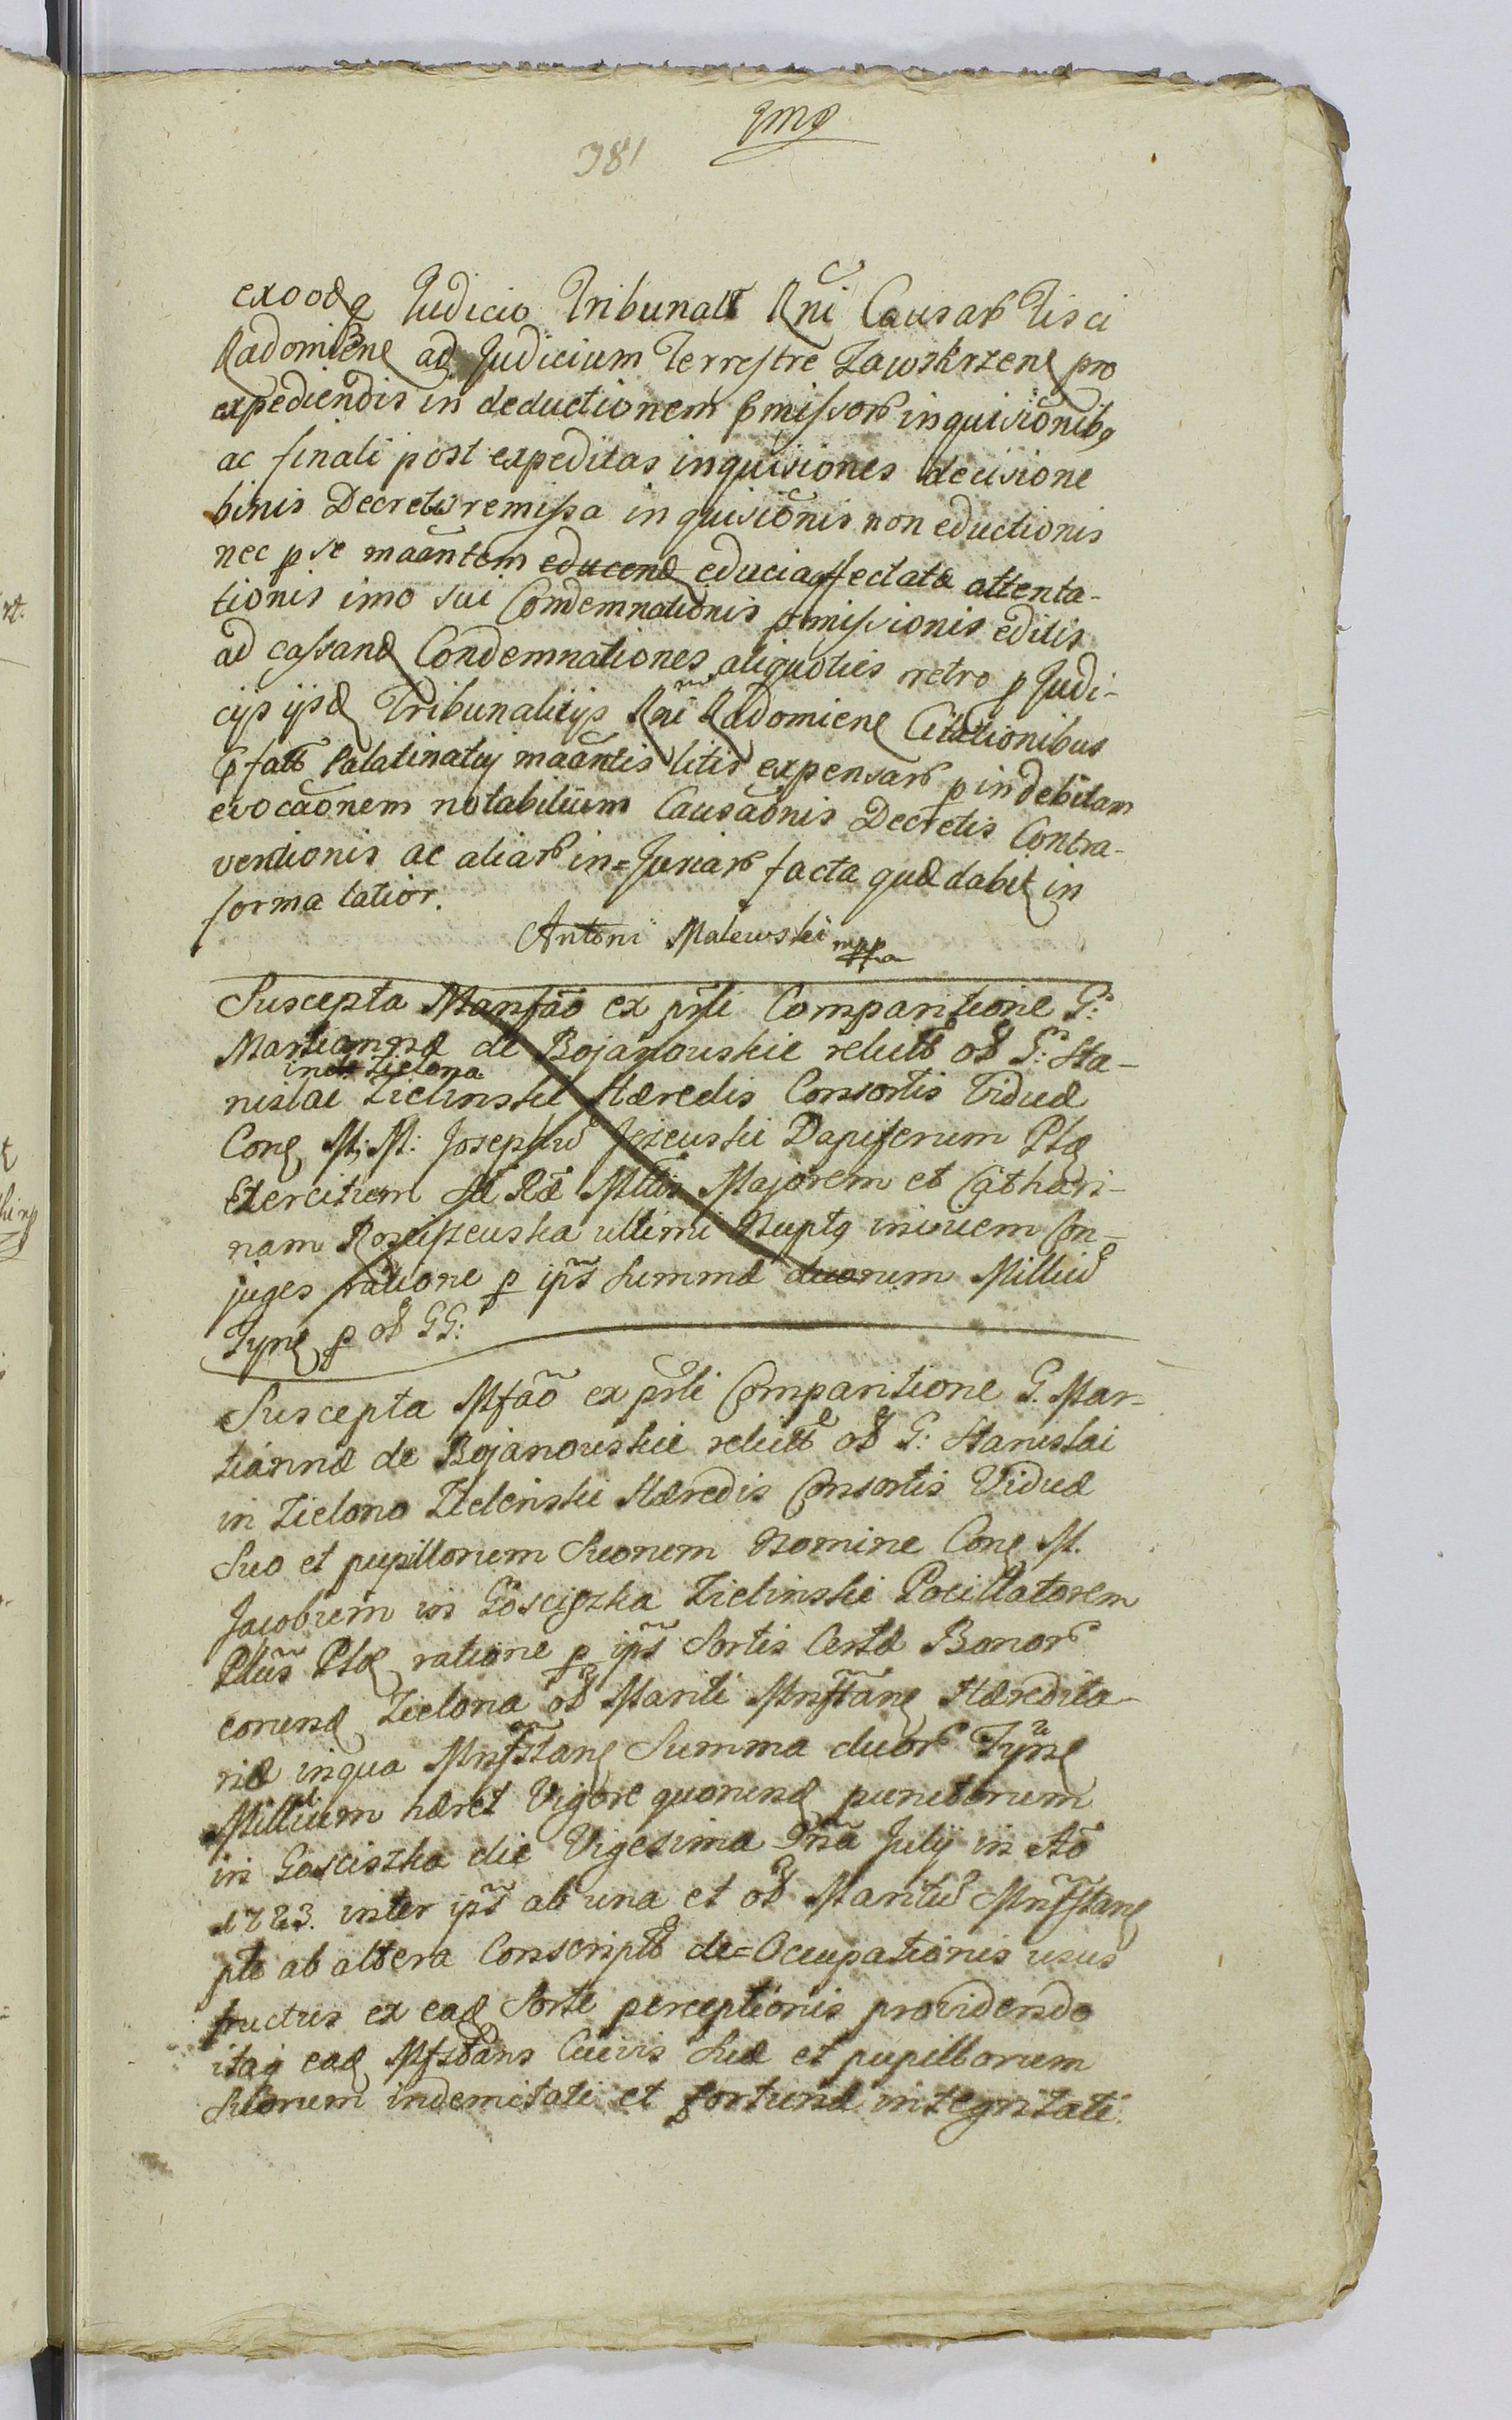 381
exood q Judicio Tribunalt Rni Causar Fisci
Radomiene ad Judicium Terrestre Zawskrzene pro
expediendis in deductionem pmissor inquisionibq
ac finali post expeditas inquisiones decisione
binis Decretis remissa inquisionis non eductionis
nec p se maantem educend educi affectata attenta-
tionis imo sui Condemnationis pmissionis editis
ad cassand Condemnationes aliquoties retro p Judi-
cijs ijsd Tribunalitijs Rni Radomiene Citationibus
pfatt Palatinatus maantis litis expensar p indebitam
evocaonem notabilium Causaonis Decretis Contra-
ventionis ac aliar in=Juriar facta quæ dabit in
forma latior.
Antoni Malewski mppa
Suscepta Manfão ex prli Comparitione G:
Martiannæ de Bojanowskie relictt ol G: Sta-
in Zielona
nislai Zielinski Hæredis Consortis Viduæ
Cong M: M: Josephu Jezewski Dapiferum
Exercitum Sæ Ræ Mttis Majorem et Cathari-
nam Rosciszewska ultimi Nuptq invicem Con-
juges ratione p ips Summæ duorum Milliu
Tyne p ol GG:
Suscepta Mfão ex prli Comparitione G. Mar-
tiannæ de Bojanowskie relictt ol G: Stanislai
in Zielona Zielenski Hæredis Consortis Viduæ
Suo et pupillorum Suorum Nomine Cong M.
Jacobum in Gosciszka Zielinski Pocillatorem
ratione p ips Sortis Certæ Bonor
corund Zielona ol Mariti Mnfstane Hæredita-
riæ in qua Mnfstane Summa duor Tyne
Millium hæret Vigore quorund punctorum
in Gosciszka die Vigesima Jna Julij in Ao
1783. inter ips ab una et ol Maritu Mnfstane
pte ab altera Conscriptt de=Occupationis usus
fructus ex ead Sorte perceptionis providendo
itaq ead Mfstans Cuivis Suæ et pupillorum
Suorum indemitati et fortunæ integritati